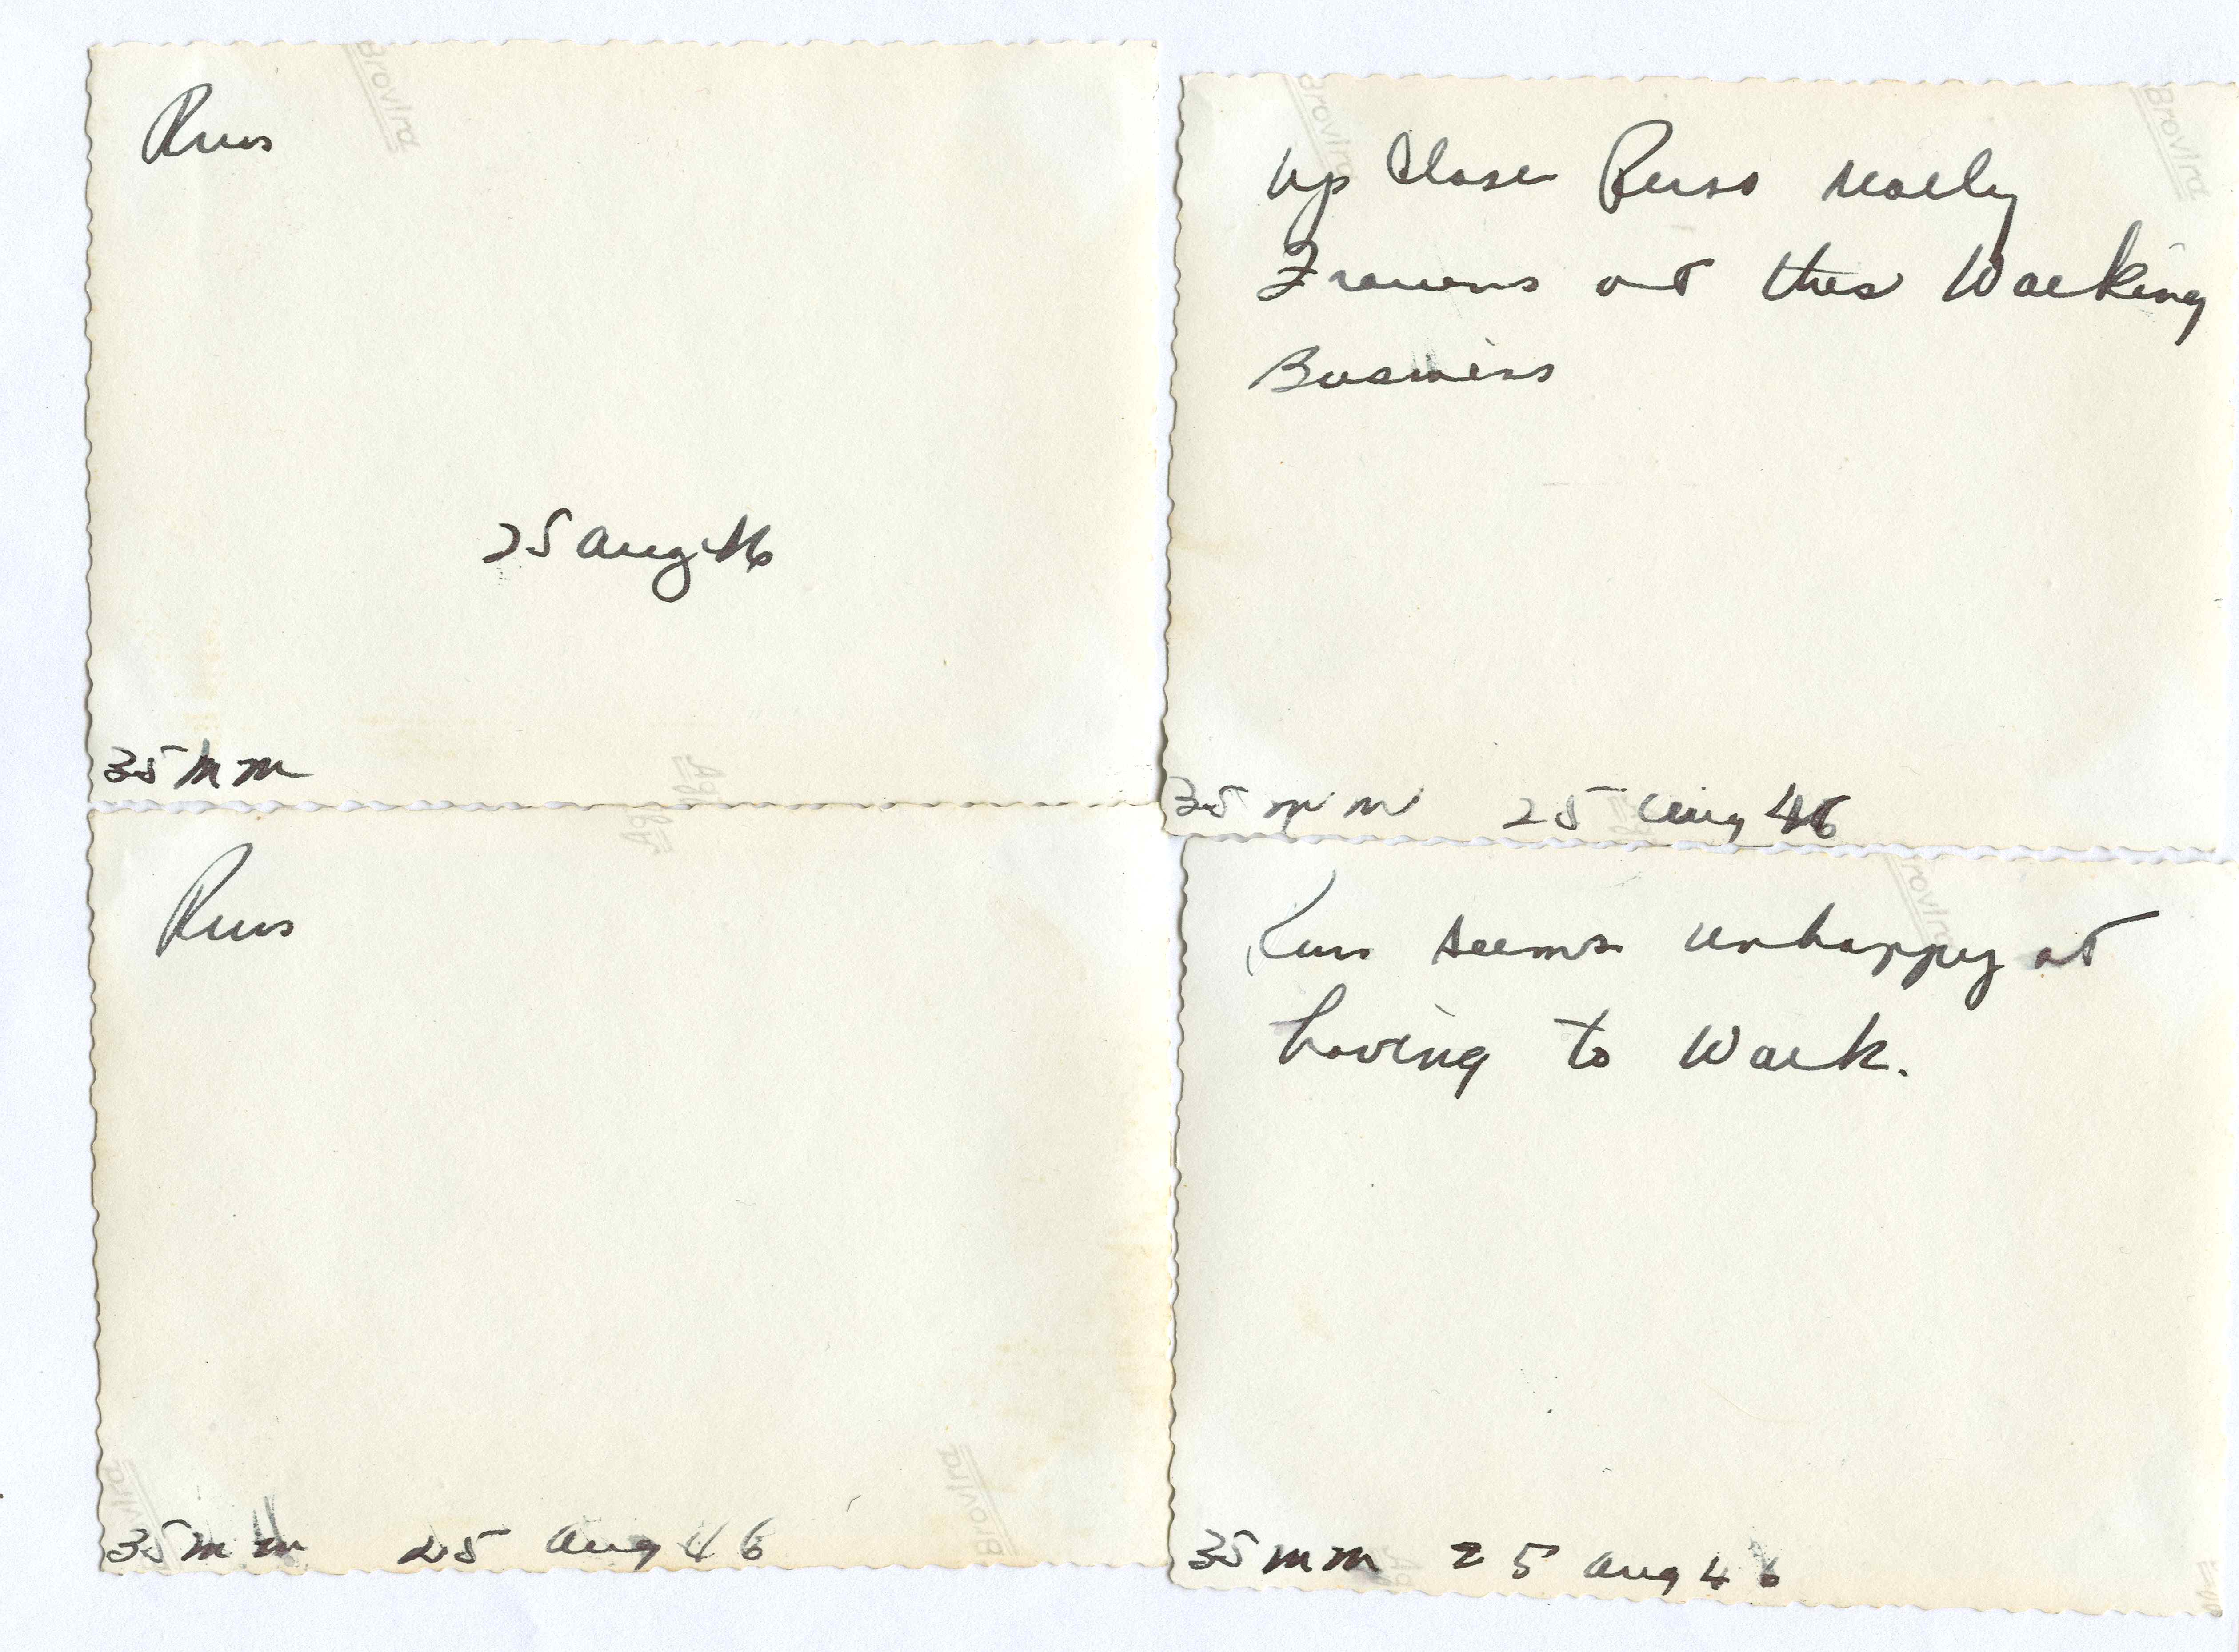 Russ
25 Aug 46
35 mm
Up Close Russ really
Frowns at this Working
Business
35 mm 25 Aug 46
Russ
35 mm 25 Aug 46
Russ seems unhappy at
having to Work.
35 mm 25 Aug 46
Brovira
Brovira
Brovira
Agfa
Agfa
Brovira
Brovira